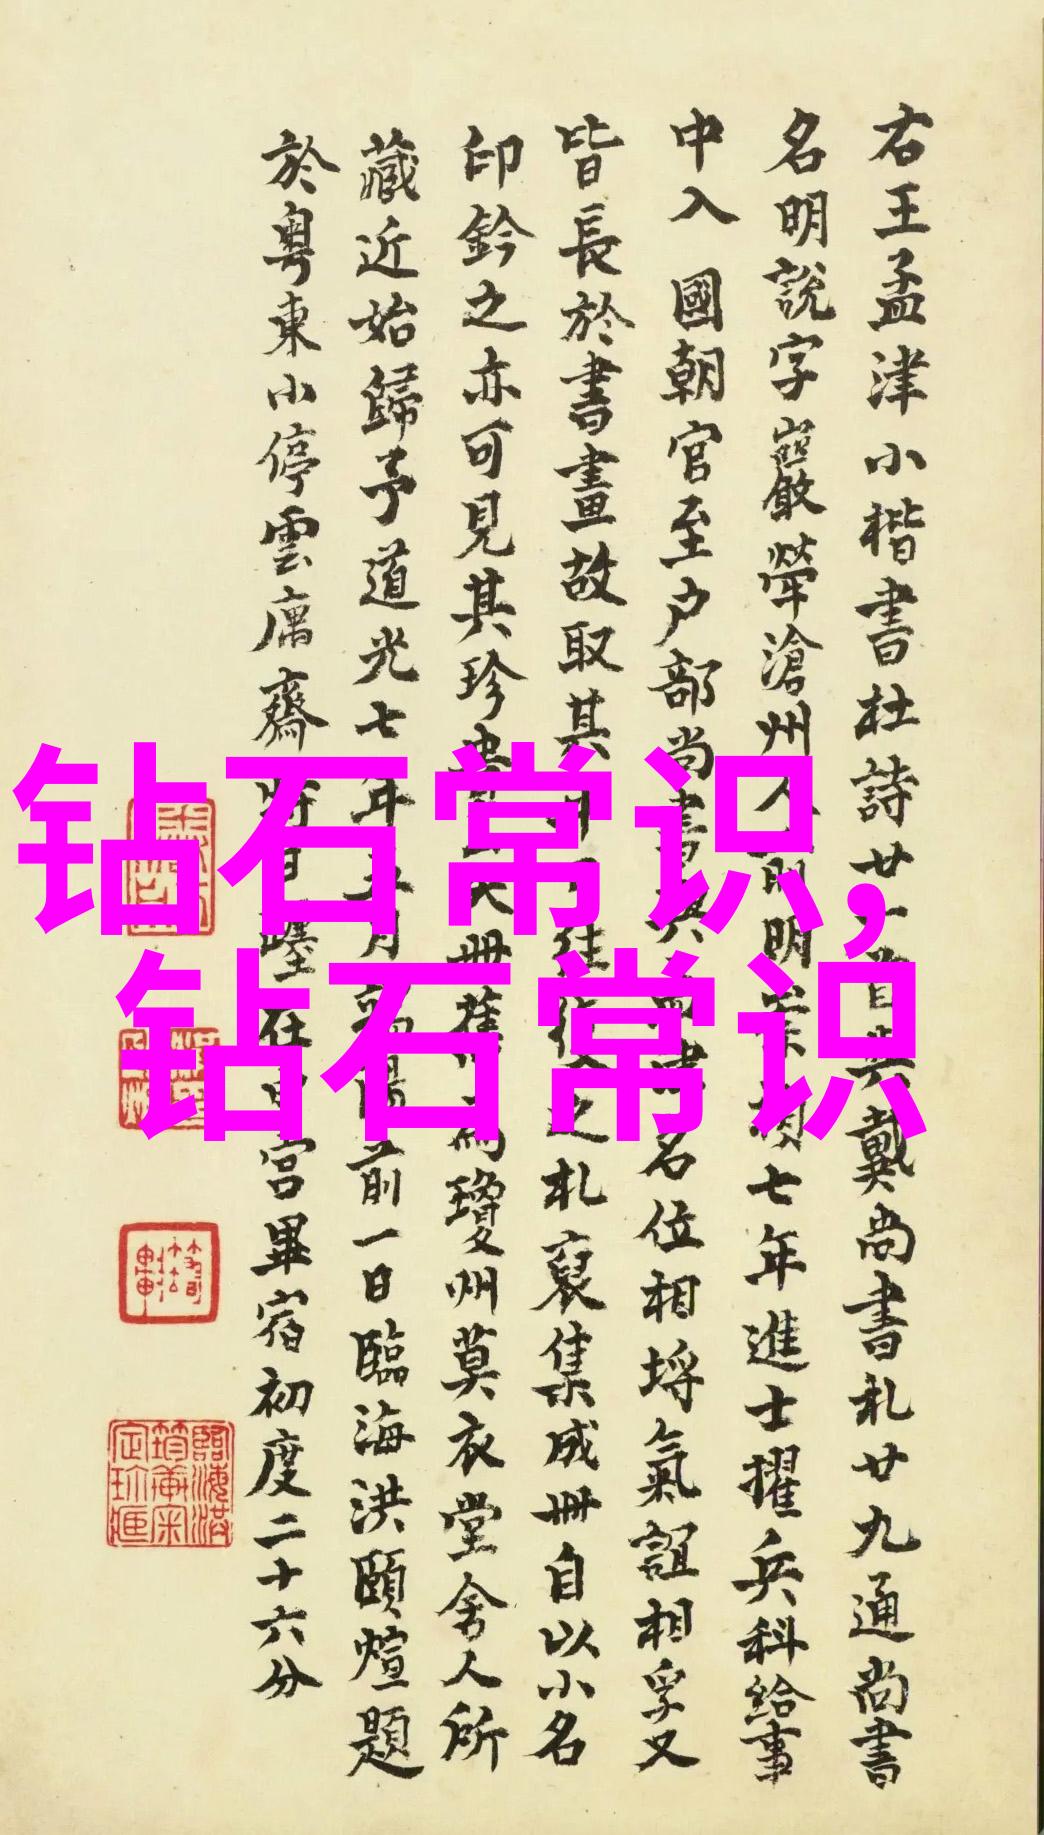 钻石常识,
钻石常识
右王孟津小楷書杜詩廿一首共戴尚書札廿九通尚書
名明說字巖犖滄州人前明崇禎七年進士擢兵科給事
中入國朝官至户部尚書與孟津名位相埒氣誼相孚又
皆長於書畫故取其
之札裒集成册自以小名
印鈐之亦可見其珍
瓊州莫衣堂舍人所
藏近始歸予道光七年五月
前一日臨海洪頤煊題
於粤東小停雲庽齋時日躔在
宫畢宿初度二十六分